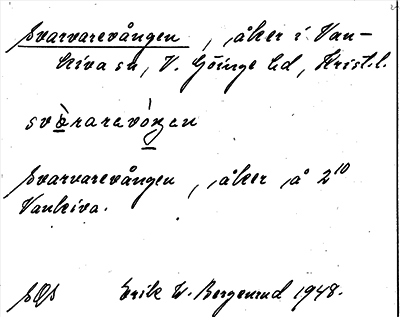 Svarvarevången, åker i Van-
kiva sn, V. Göinge hd, Krist. l.
svàrarevóŋen
Svarvarevången, åker å 2¹⁰
Vankiva.
SOS Erik W. Bergenrud 1948.